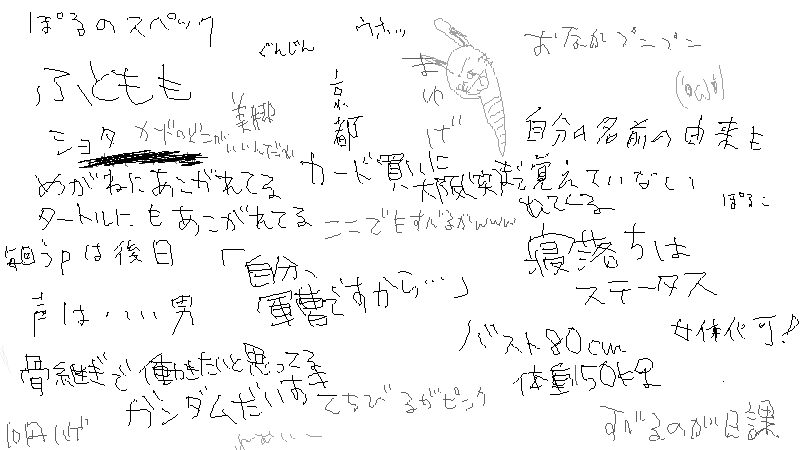 ぽるのスペック
ぐんじん
ウホッ
おなかプニプニ
ふともも
京都
まゆげ
美脚
ショタ
カードのどこがいいんだわ
自分の名前の由来も
覚えていない
めがねにあこがれてる
カード買いに
大阪襲来
れてくる
ぽるこ
タートルにもあこがれてる
ここでもすべるがwww
毎回うpは後日
「自分、
軍曹ですから…」
寝落ちは
ステータス
声は・・・・男
バスト80cm
女体化可!
骨継ぎで働きたいと思ってる
体重150kg
ガンダムだいお
てちびるがピンク
10円ハゲ
すべるのが日課